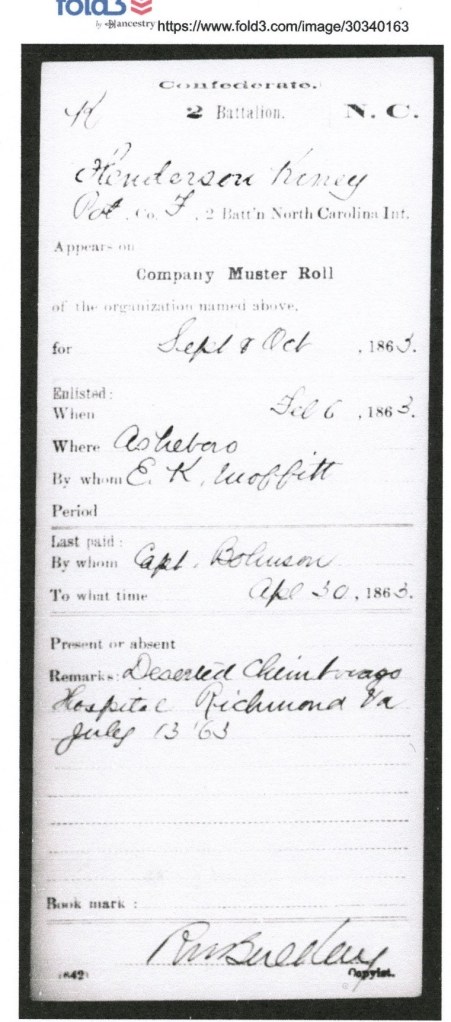 fold3
by ancestry https://www.fold3.com/image/30340163
Confederate.
K 2 Battalion. N. C.
Henderson Kiney
Pvt, Co. F, 2 Batt'n North Carolina Inf.
Appears on
Company Muster Roll
of the organization named above,
for Sept & Oct, 1863.
Enlisted:
When Feb 6, 1863.
Where Asheboro
By whom E. K. Moffitt
Period
Last paid:
By whom Capt.
To what time Apl 30, 1863.
Present or absent
Remarks: Deserted Chimborago
Hospital Richmond Va
July 13 '63
Book mark:
(642) Copyist.